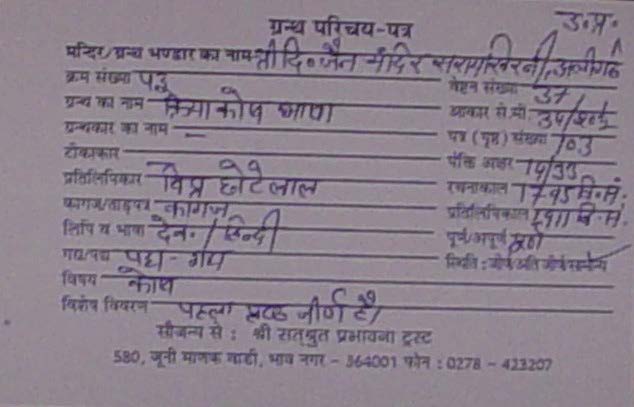 उ.प्र.
ग्रन्थ परिचय-पत्र
मन्दिर/ग्रन्थ भण्डार का नाम श्री दि० जैन मंदिर सरायखिरनी, अलीगढ़
क्रम संख्या ५३ वेष्टन संख्या ३७
ग्रन्थ का नाम क्रियाकोष भाषा आकार से.मी.
ग्रन्थकार का नाम — पत्र (पृष्ठ) संख्या १०३
टीकाकार पंक्ति अक्षर
प्रतिलिपिकार विप्र छोटेलाल रचनाकाल 1795 वि.सं.
कागज/ताड़पत्र कागज प्रतिलिपिकाल १९११ वि.सं.
लिपि व भाषा देव०/हिन्दी पूर्ण/अपूर्ण पूर्ण
गद्य/पद्य पद्य-गद्य स्थिति : जीर्ण अति जीर्ण सामान्य
विषय कोष
विशेष विवरण पहला पृष्ठ जीर्ण है।
सौजन्य से : श्री सत्श्रुत प्रभावना ट्रस्ट
580, जूनी माणक वाडी, भाव नगर - 364001 फोन : 0278 - 423207